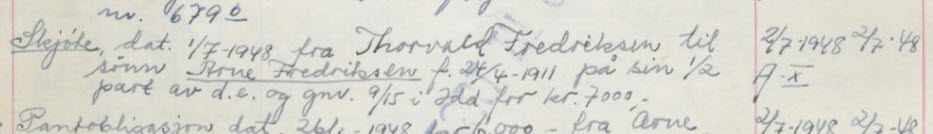 nr. 6790
Skjøte, dat. 1/7-1948 fra Thorvald Fredriksen til 2/7-1948 2/7-48
sønn Arne Fredriksen f. 24/4-1911 på sin 1/2 A-X
part av d.e. og gnv. 9/15 i Idd for kr. 7000,-
Pantobligasjon dat. 1948 000,- fra Arne 2/7-1948 2/7-48